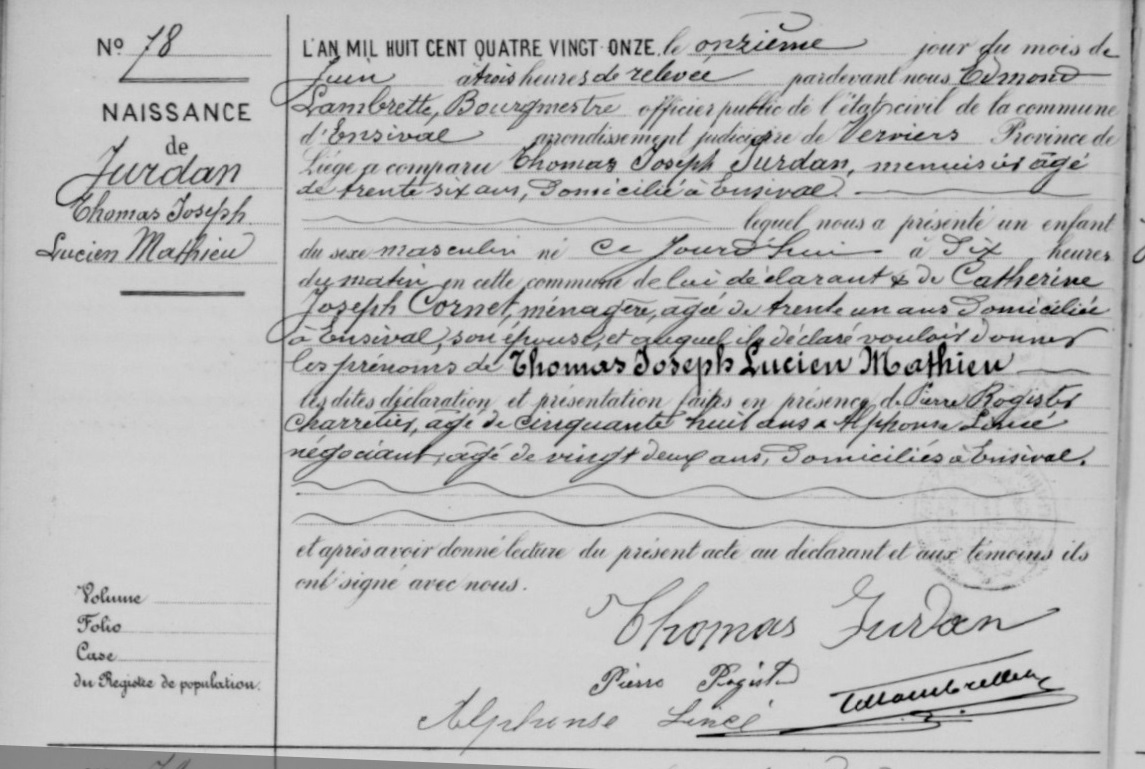 N° 78
NAISSANCE
de
Jurdan
Thomas Joseph
Lucien Mathieu
L'AN MIL HUIT CENT QUATRE VINGT ONZE, le onzième jour du mois de
Juin à trois heures de relevée pardevant nous Edmond
Lambrette, Bourgmestre officier public de l'état civil de la commune
d'Ensival arrondissement judiciaire de Verviers Province de
Liége a comparu Thomas Joseph Jurdan, menuisier âgé
de trente six ans, Domicilié à Ensival.
lequel nous a présenté un enfant
du sexe masculin né ce jourd'hui à Six heures
du matin en cette commune de lui déclarant & de Catherine
Joseph Cornet, ménagère, âgée de trente un ans Domiciliée
à Ensival, son épouse, et auquel il a déclaré vouloir donner
les prénoms de Thomas Joseph Lucien Mathieu
les dites déclaration et présentation faites en présence de Pierre Rogister
charretier, âgé de cinquante huit ans & Alphonse Lincé
négociant, âgé de vingt deux ans, Domiciliés à Ensival.
et après avoir donné lecture du présent acte au déclarant et aux témoins ils
ont signé avec nous.
Thomas Jurdan
Pierre Rogister
Alphonse Lincé
Volume
Folio
Case
du Registre de population.